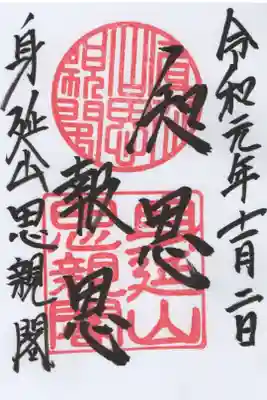 令和元年十一月二日
知恩
報恩
身延山思親閣
身延
山思
親閣
身延山
思親閣